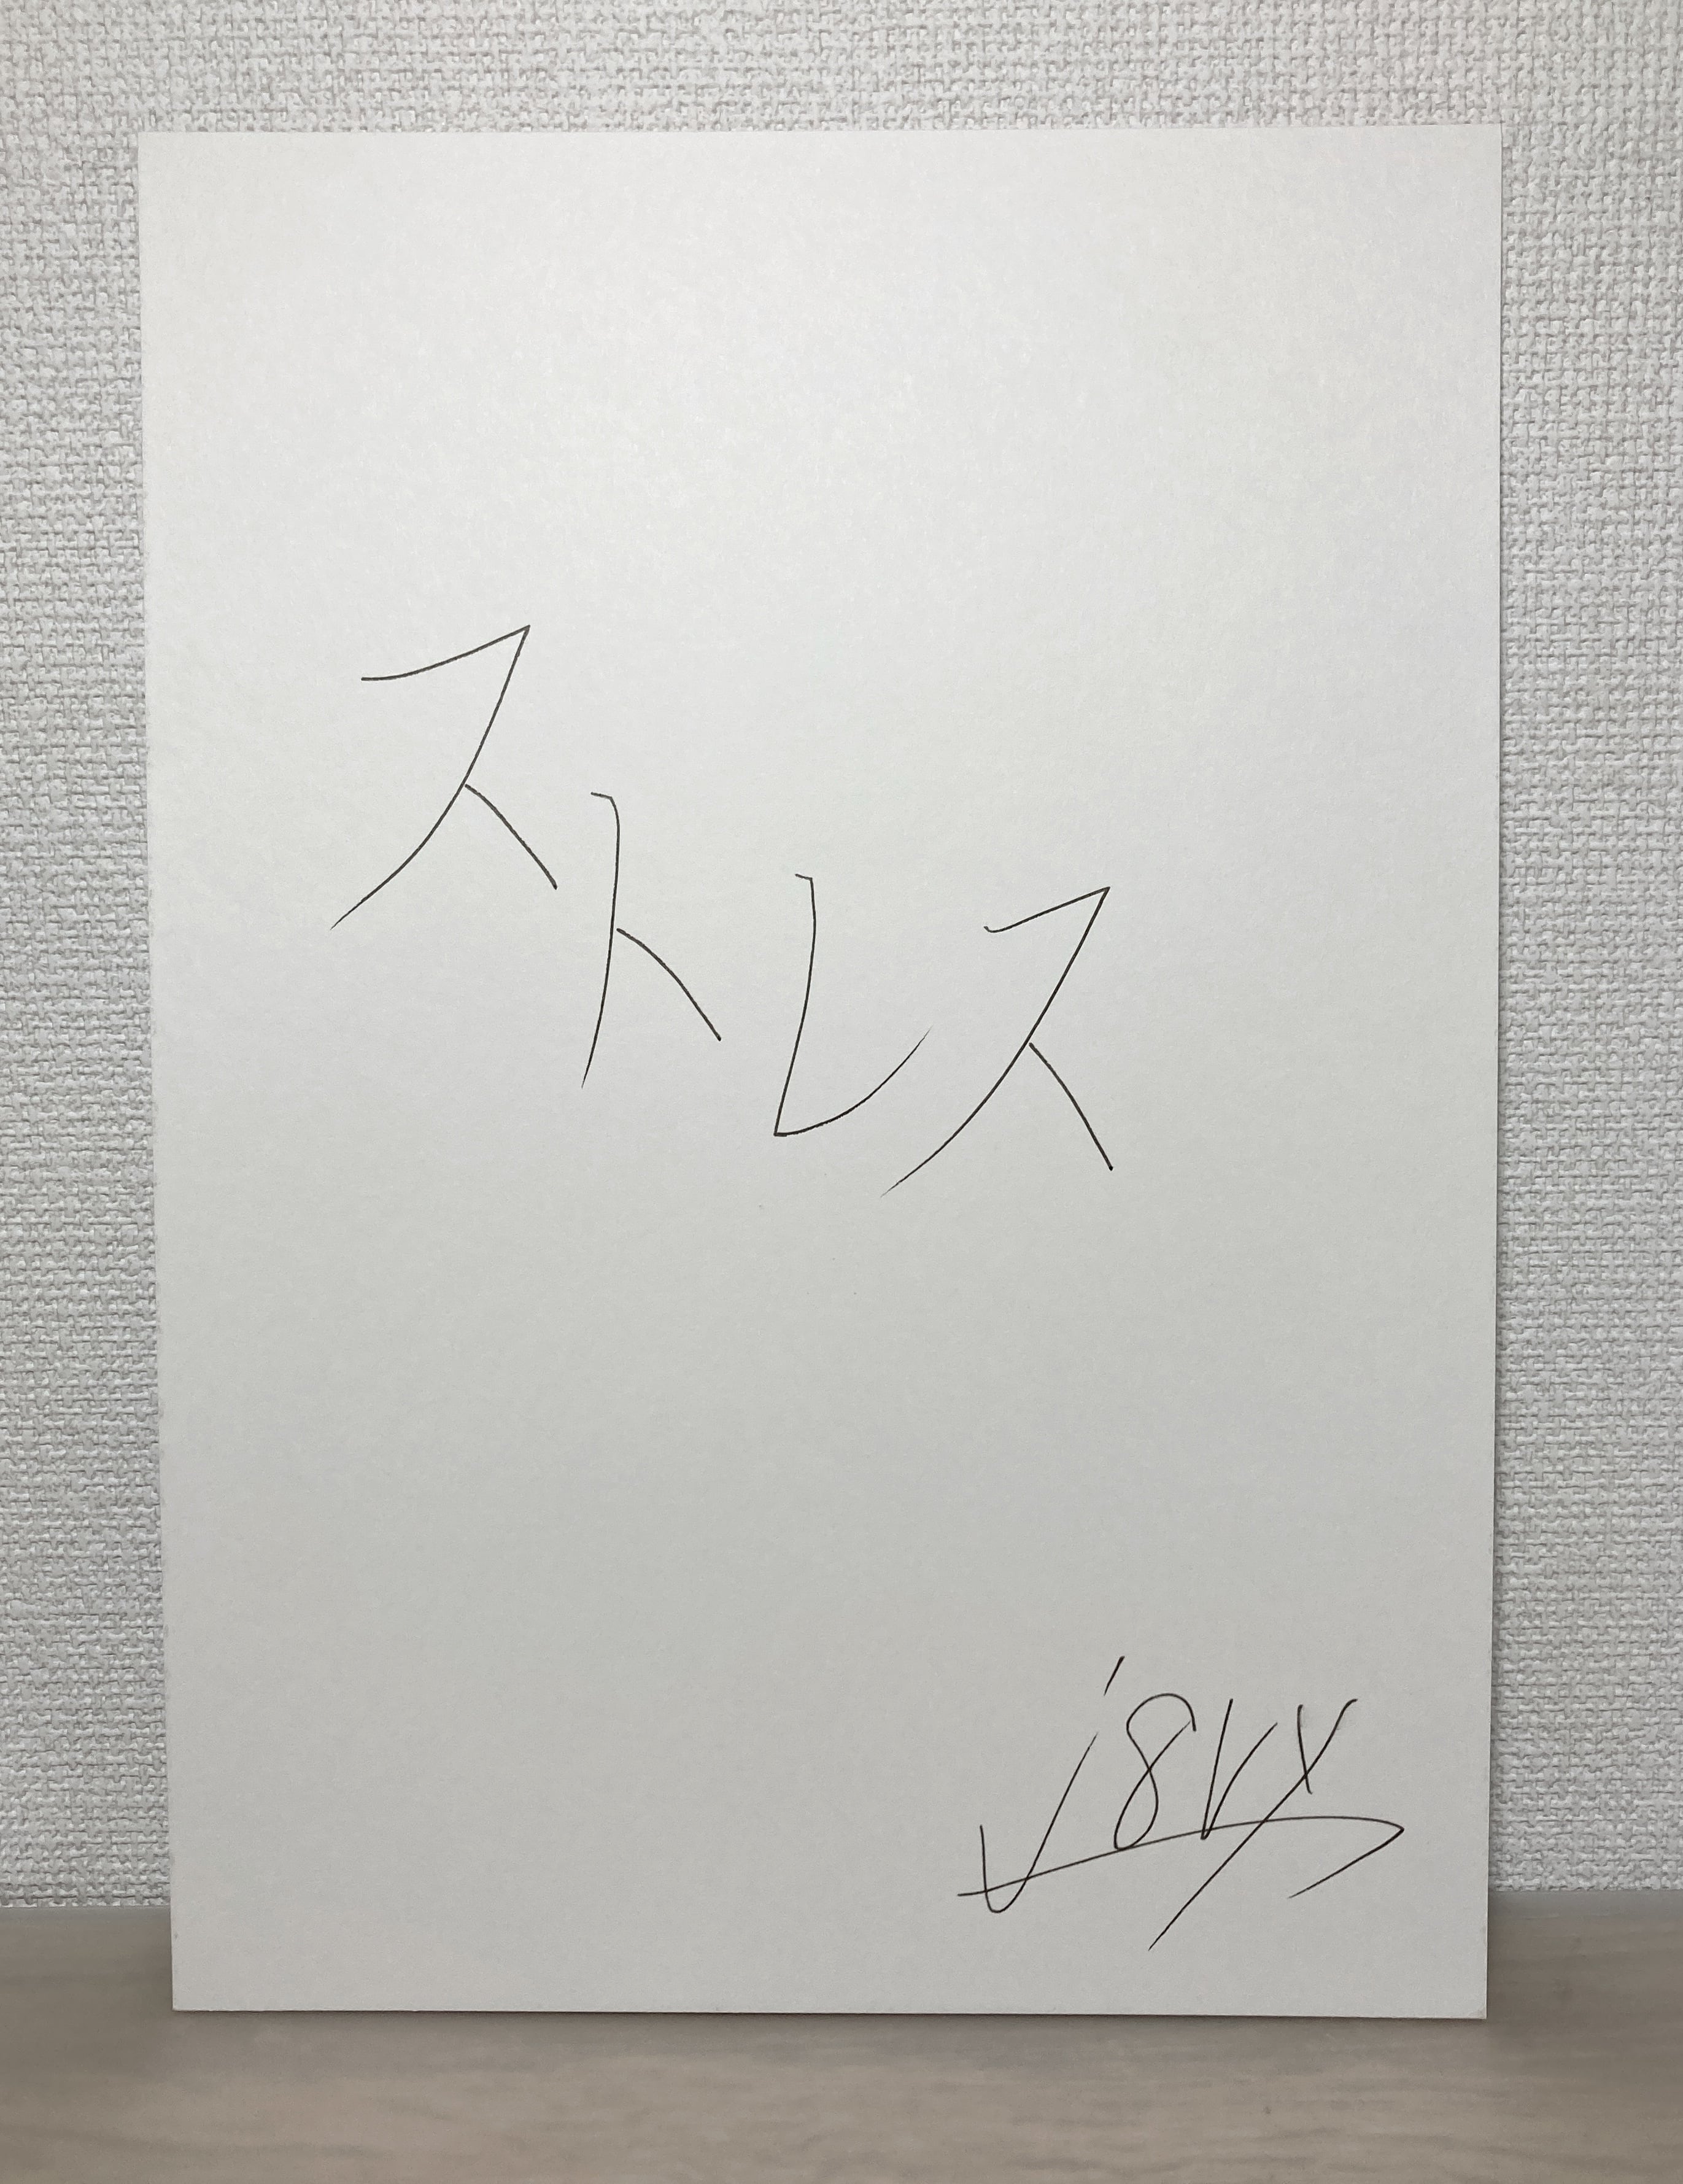 ストレス